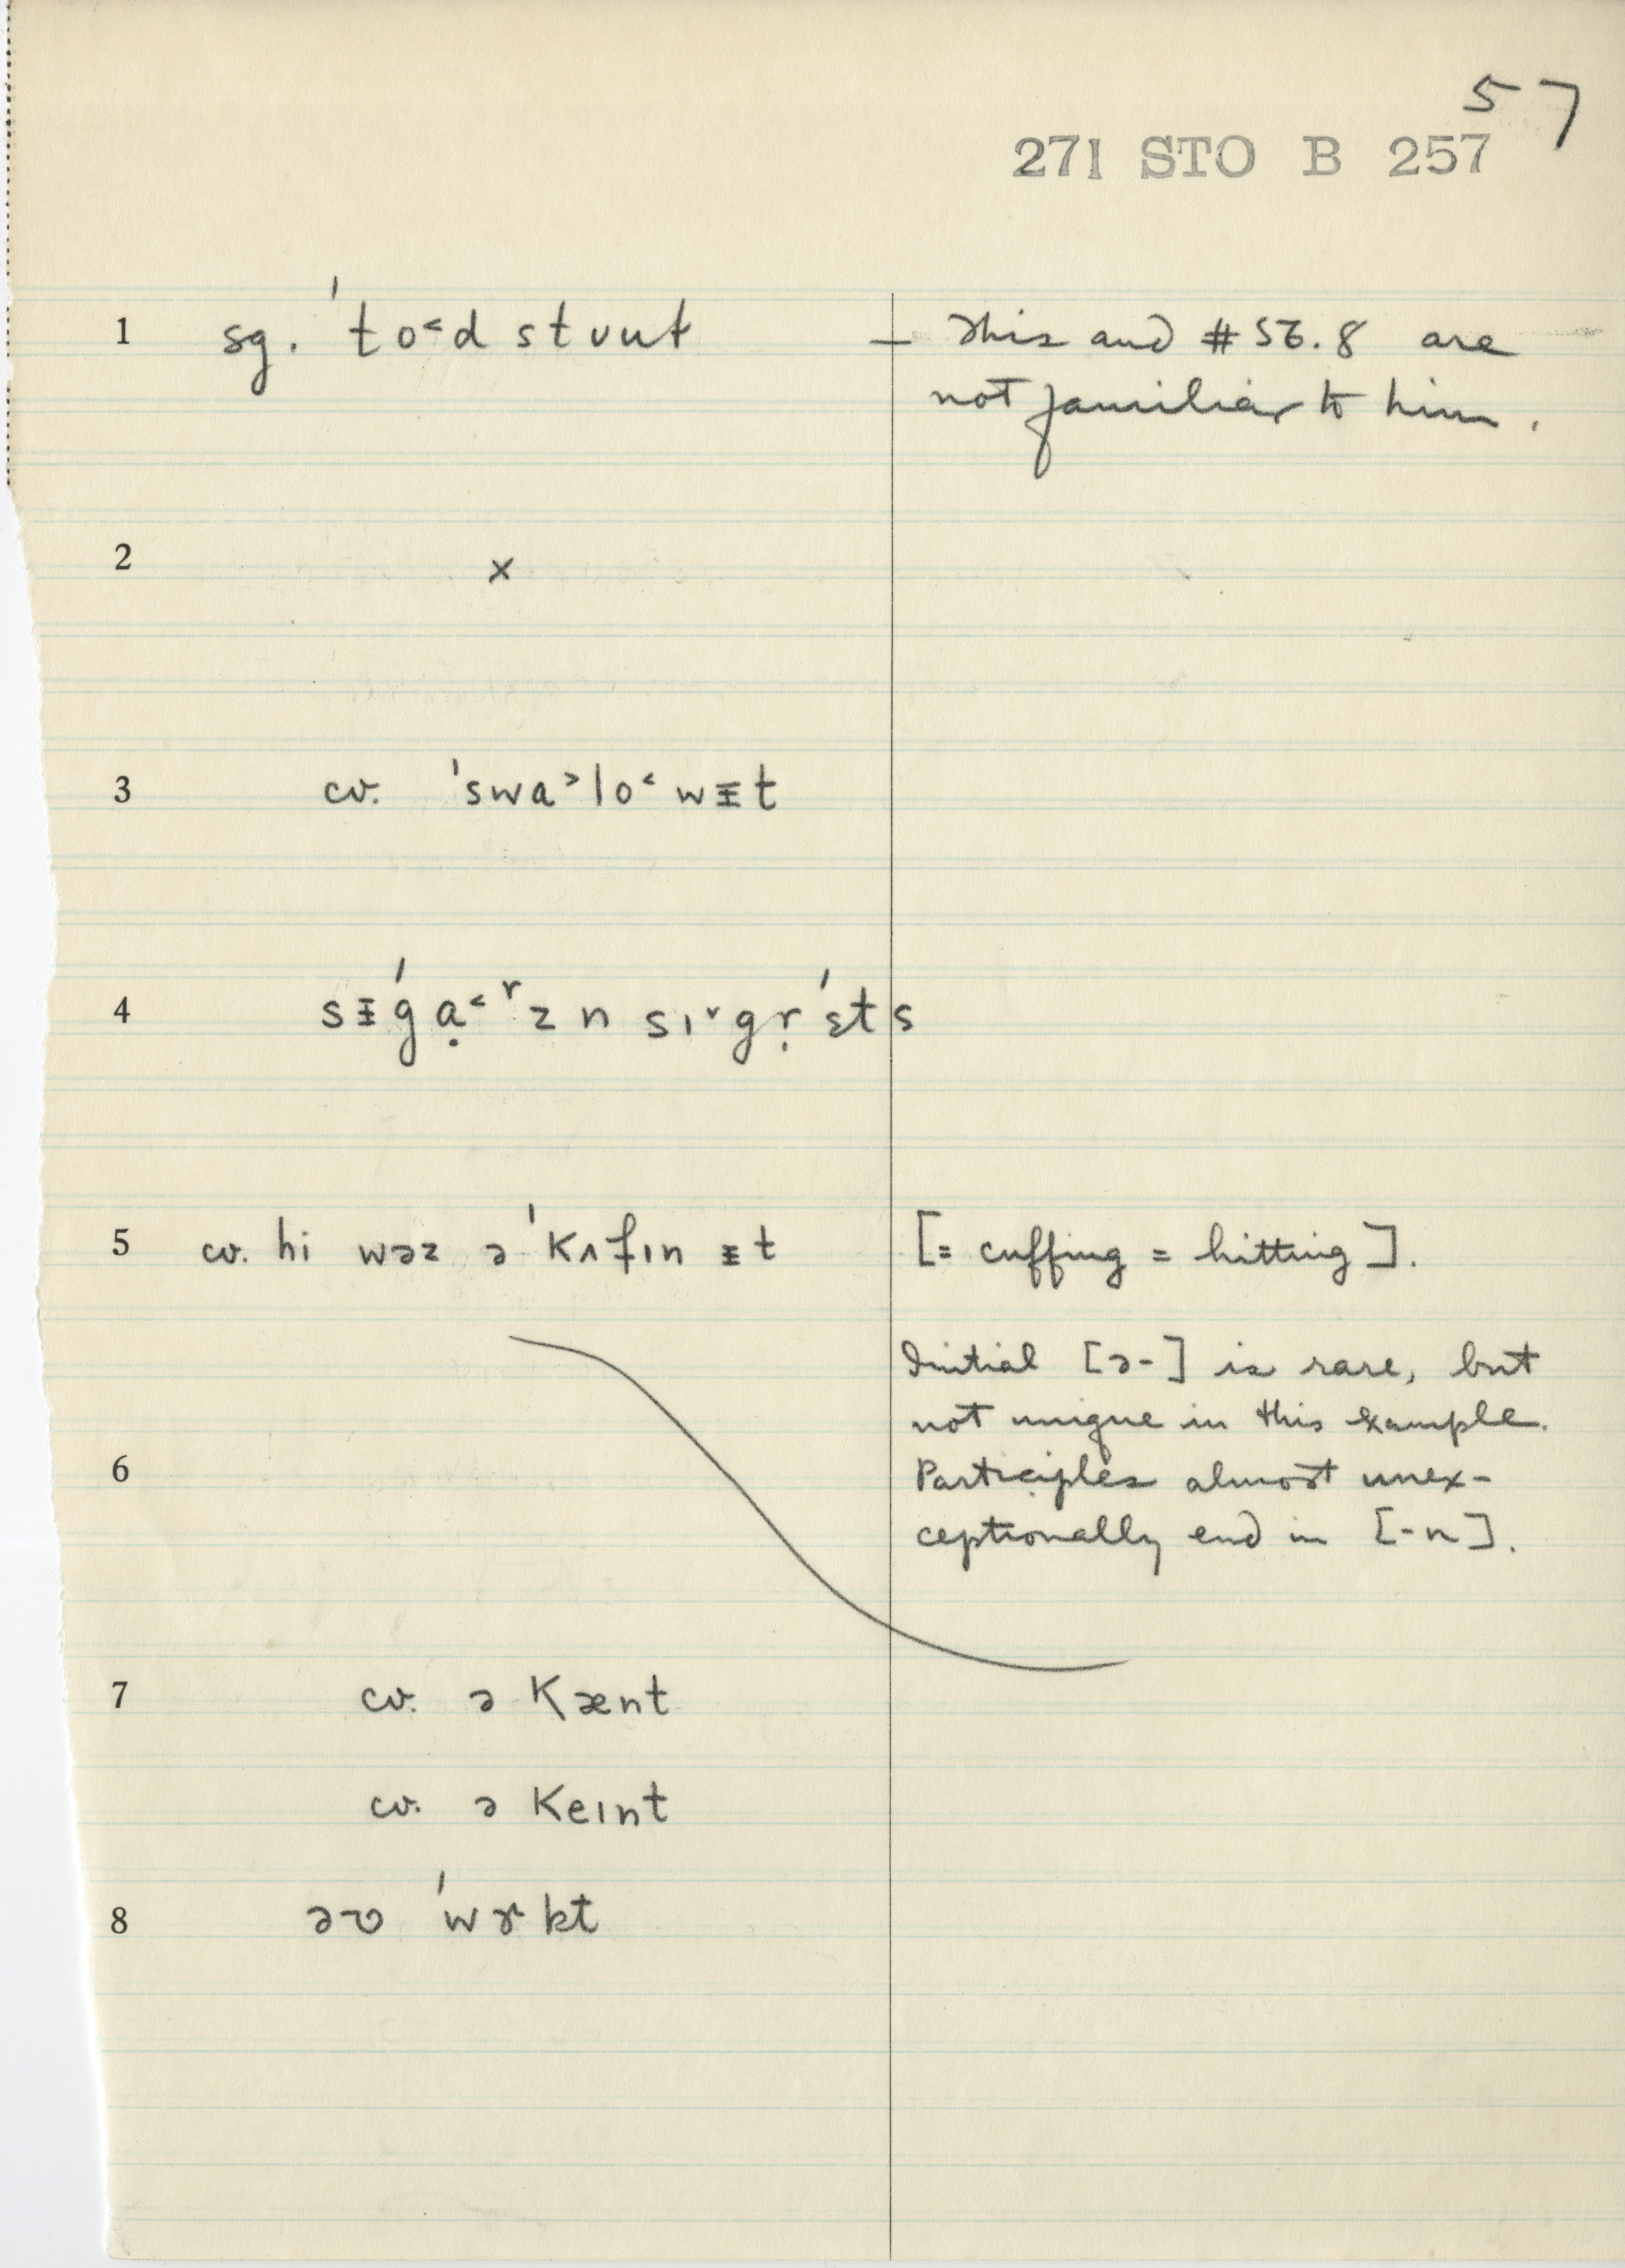 57
271 STO B 257
1 sg. ˈto˂d stuut — This and #56.8 are
not familiar to him.
2 x
3 cv. ˈswa˃lo˂wᵻt
4 sᵻˈgạ˂ʳzn sɪ˅gṛˈɛts
5 cv. hi wəz əˈkʌfɪn ᵻt [= cuffing = hitting].
Initial [ə-] is rare, but
not unique in this example.
6 Participles almost unex-
ceptionally end in [-n].
7 cv. ə kænt
cv. ə keɪnt
8 əʊ ˈwɝkt